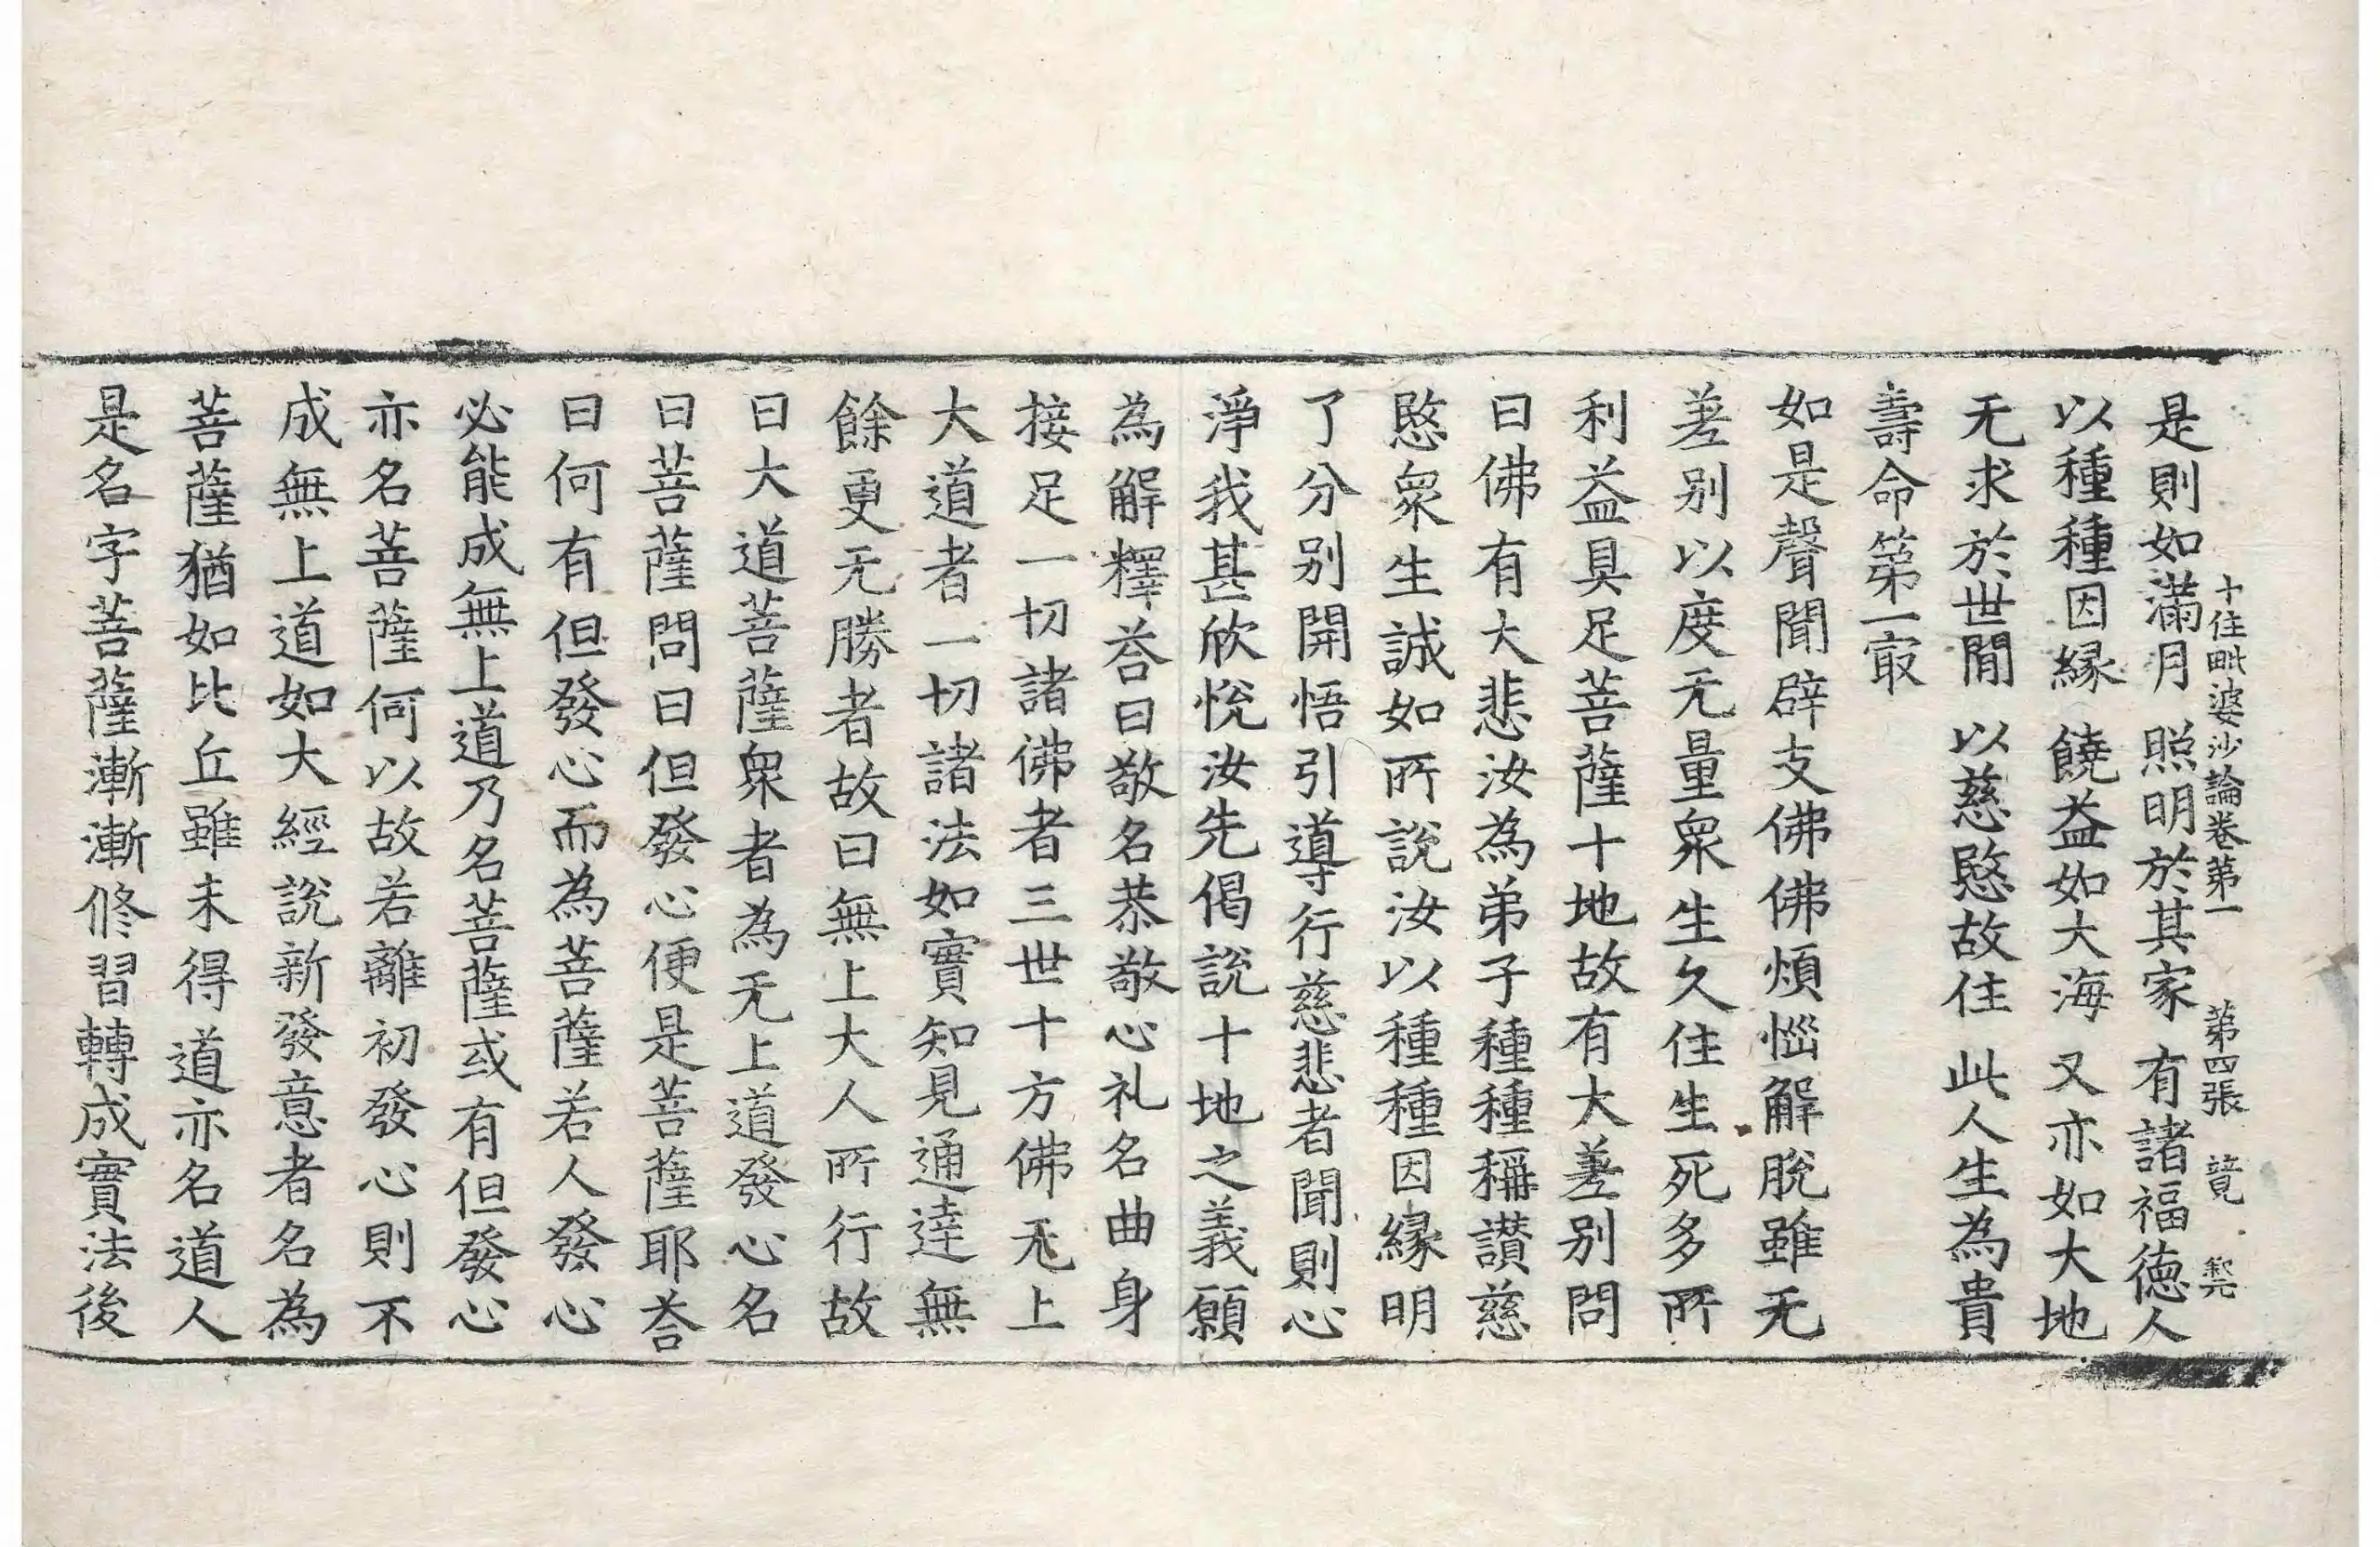 十住毗婆沙論卷第一 第四張 競
是則如滿月 照明於其家 有諸福德人
以種種因緣 饒益如大海 又亦如大地
无求於世間 以慈愍故住 此人生為貴
壽命第一㝡
如是聲聞辟支佛佛煩惱解脫雖无
差别以度无量衆生久住生死多所
利益具足菩薩十地故有大差别問
曰佛有大悲汝為弟子種種稱讃慈
愍衆生誠如所說汝以種種因緣明
了分别開悟引導行慈悲者聞則心
淨我甚欣悅汝先偈說十地之義願
為解釋荅曰敬名恭敬心礼名曲身
接足一切諸佛者三世十方佛无上
大道者一切諸法如實知見通達無
餘更无勝者故曰無上大人所行故
曰大道菩薩衆者為无上道發心名
曰菩薩問曰但發心便是菩薩耶荅
曰何有但發心而為菩薩若人發心
必能成無上道乃名菩薩或有但發心
亦名菩薩何以故若離初發心則不
成無上道如大經說新發意者名為
菩薩猶如比丘雖未得道亦名道人
是名字菩薩漸漸修習轉成實法後